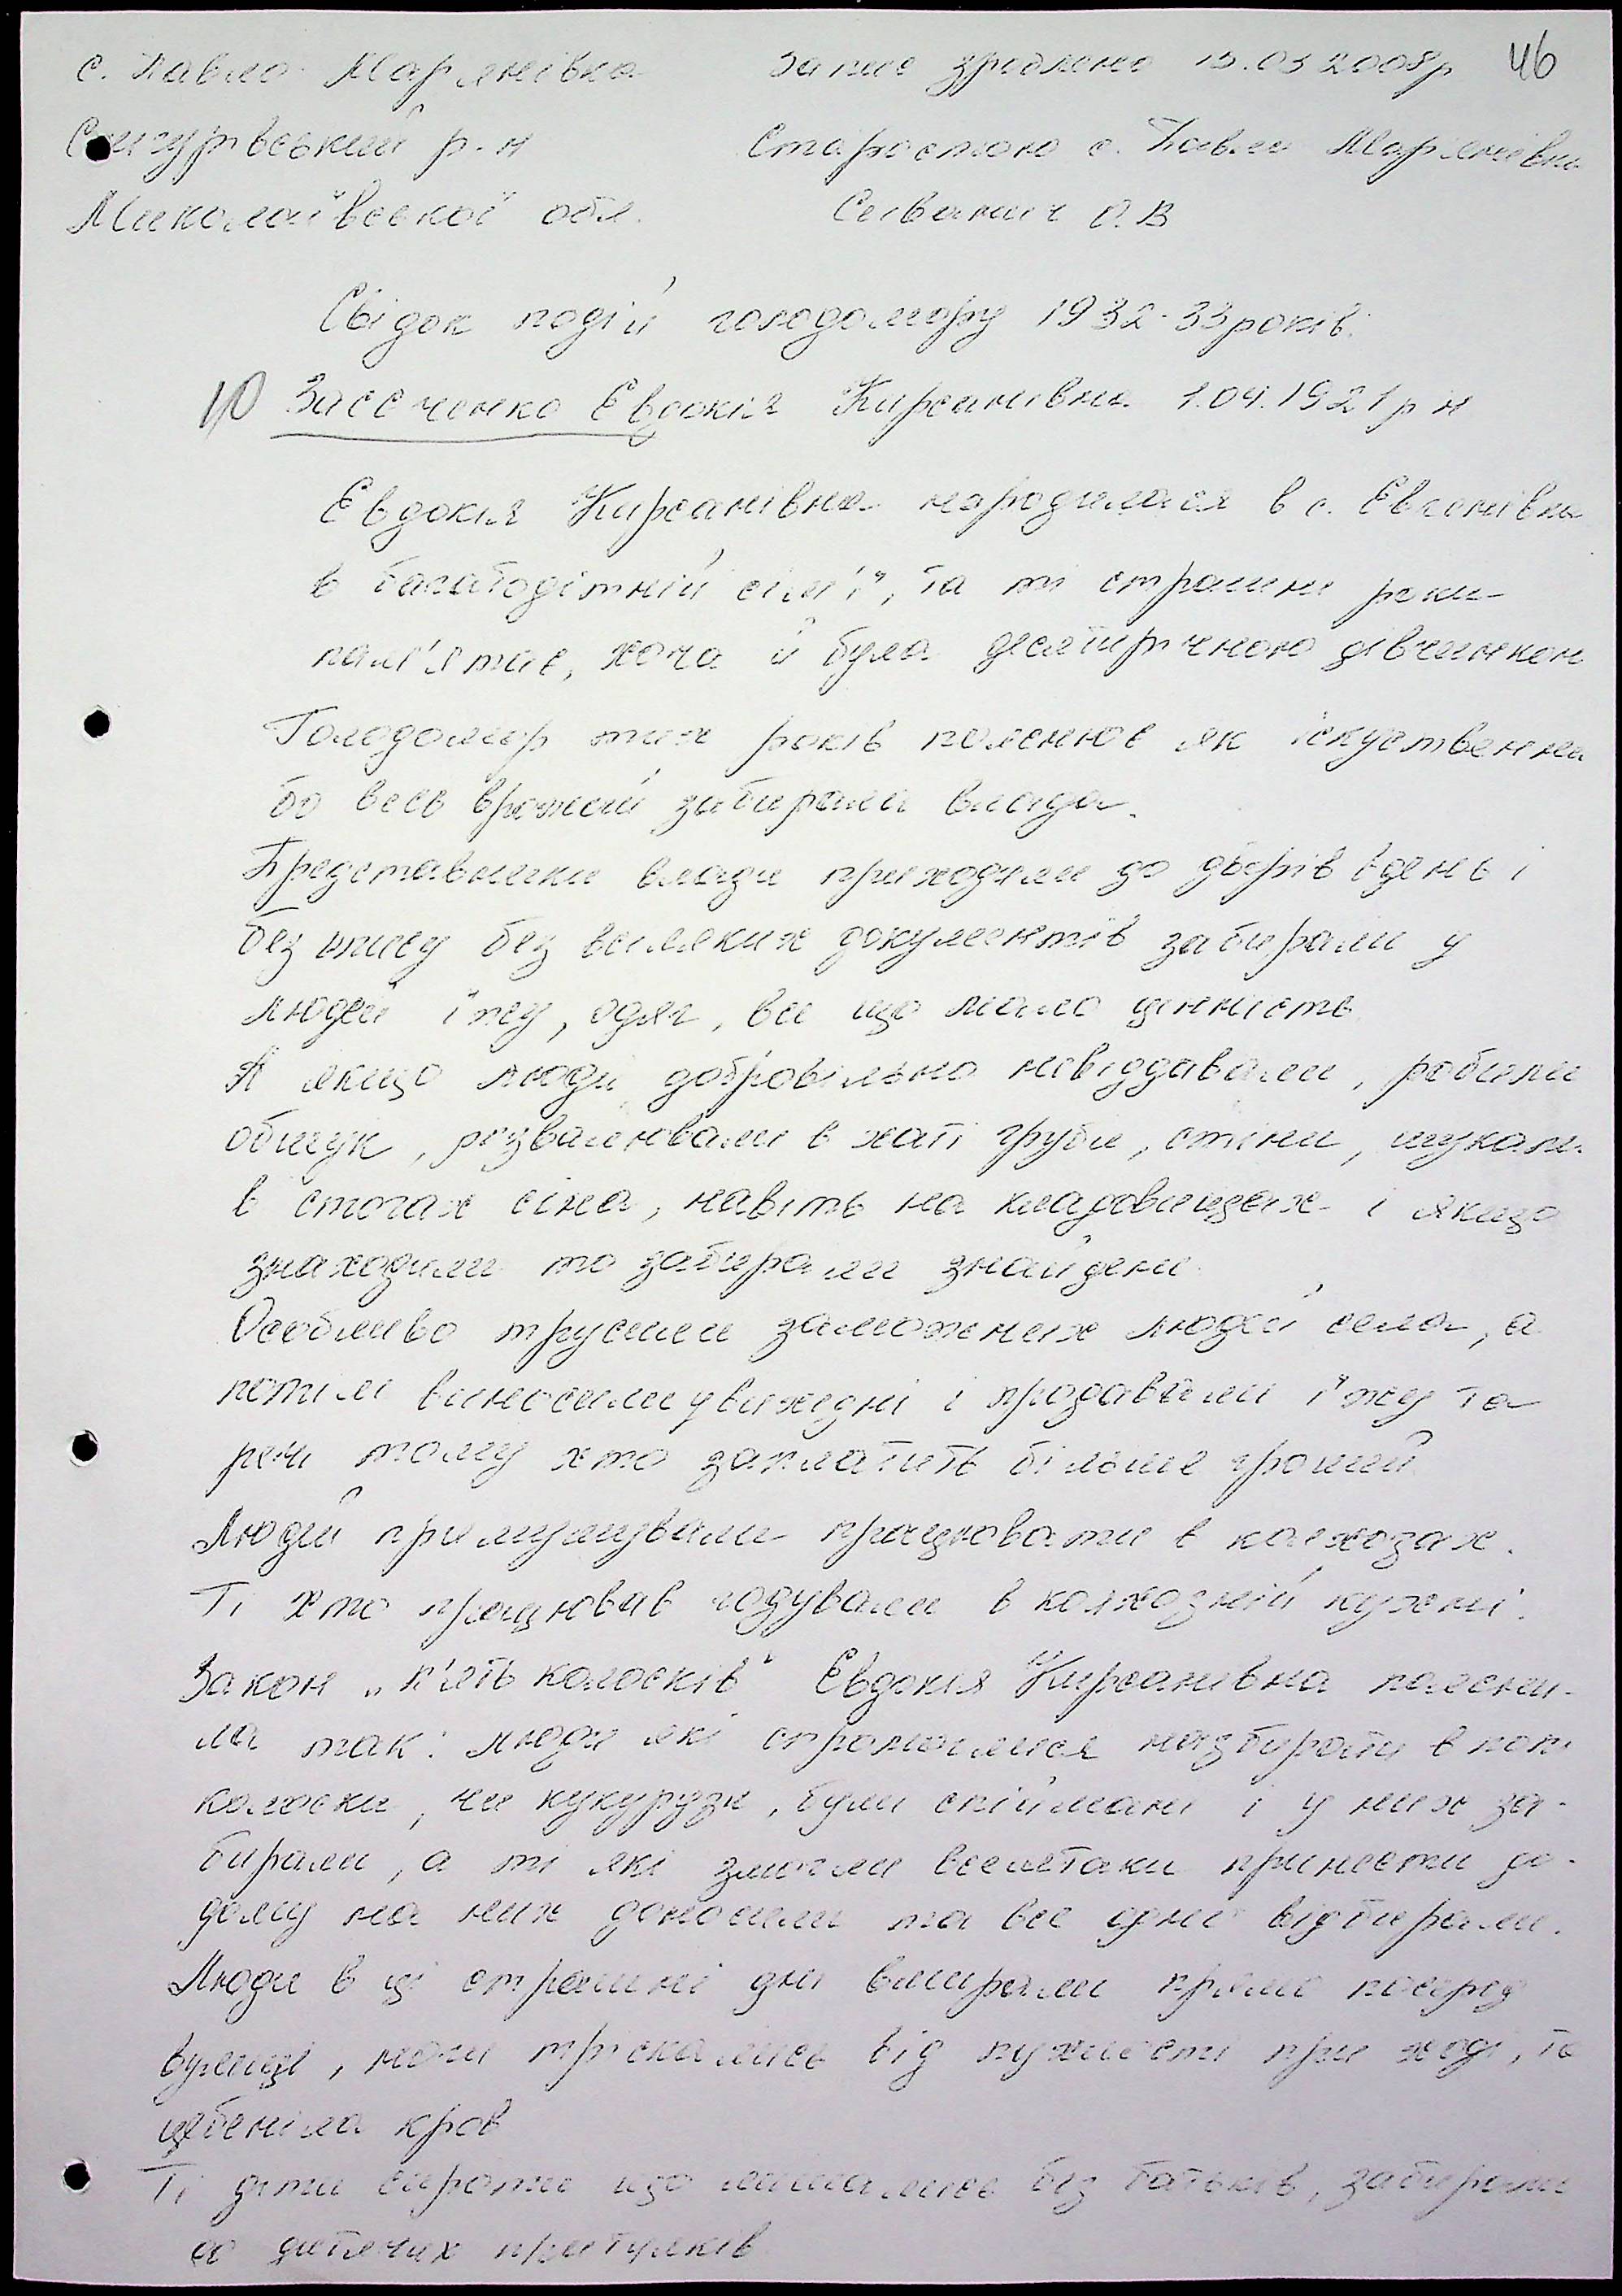 с. Павло-Мар'янівка Запис зроблено 15.03 2008р 46
Снігурівський р-н Старостою с. Павло Мар'янівка
Миколаївської обл. О.В
Свідок подій голодомору 1932-33 років.
10 Евдокія Кирсанівна 1.04.1921р н
Евдокія Кирсанівна народилася в с. Евгенівка
в багатодітній сім'ї, та ті страшні роки
пам'ятає, хоча й була десятирічною дівчинкою
Голодомор тих років пояснює як іскуственний
бо весь врожай забирала влада.
Представники влади приходили до дворів вдень і
без опису без всіляких документів забирали у
людей їжу, одяг, все що мало цінність
А якщо люди добровільно невіддавали, робили
обшук, розвалювали в хаті груби, стіни, шукали
в стогах сіна, навіть на кладовищах і якщо
знаходили то забирали знайдене.
Особливо трусили заможних людей села, а
потім виносили у вихідні і продавали їжу та
речі тому хто заплатить більше грошей
Людей примушували працювати в колхозах.
Ті хто працював годували в колхозній кухні.
Закон „п'ять колосків" Евдокія Кирсанівна поясни-
ла так: люди які спромоглися назбирати в полі
колоски, чи кукурузи, були спіймані і у них за-
бирали, а ті які змогли всеметаки принести до-
дому на них доносили та все одно відбирали.
Люди в ці страшні дні вмирали прямо посеред
вулиці, ноги тріскались від пухлості при ході, та
цебеніла кров
Ті діти сироти що лишались без батьків, забирали
до дитячих притулків